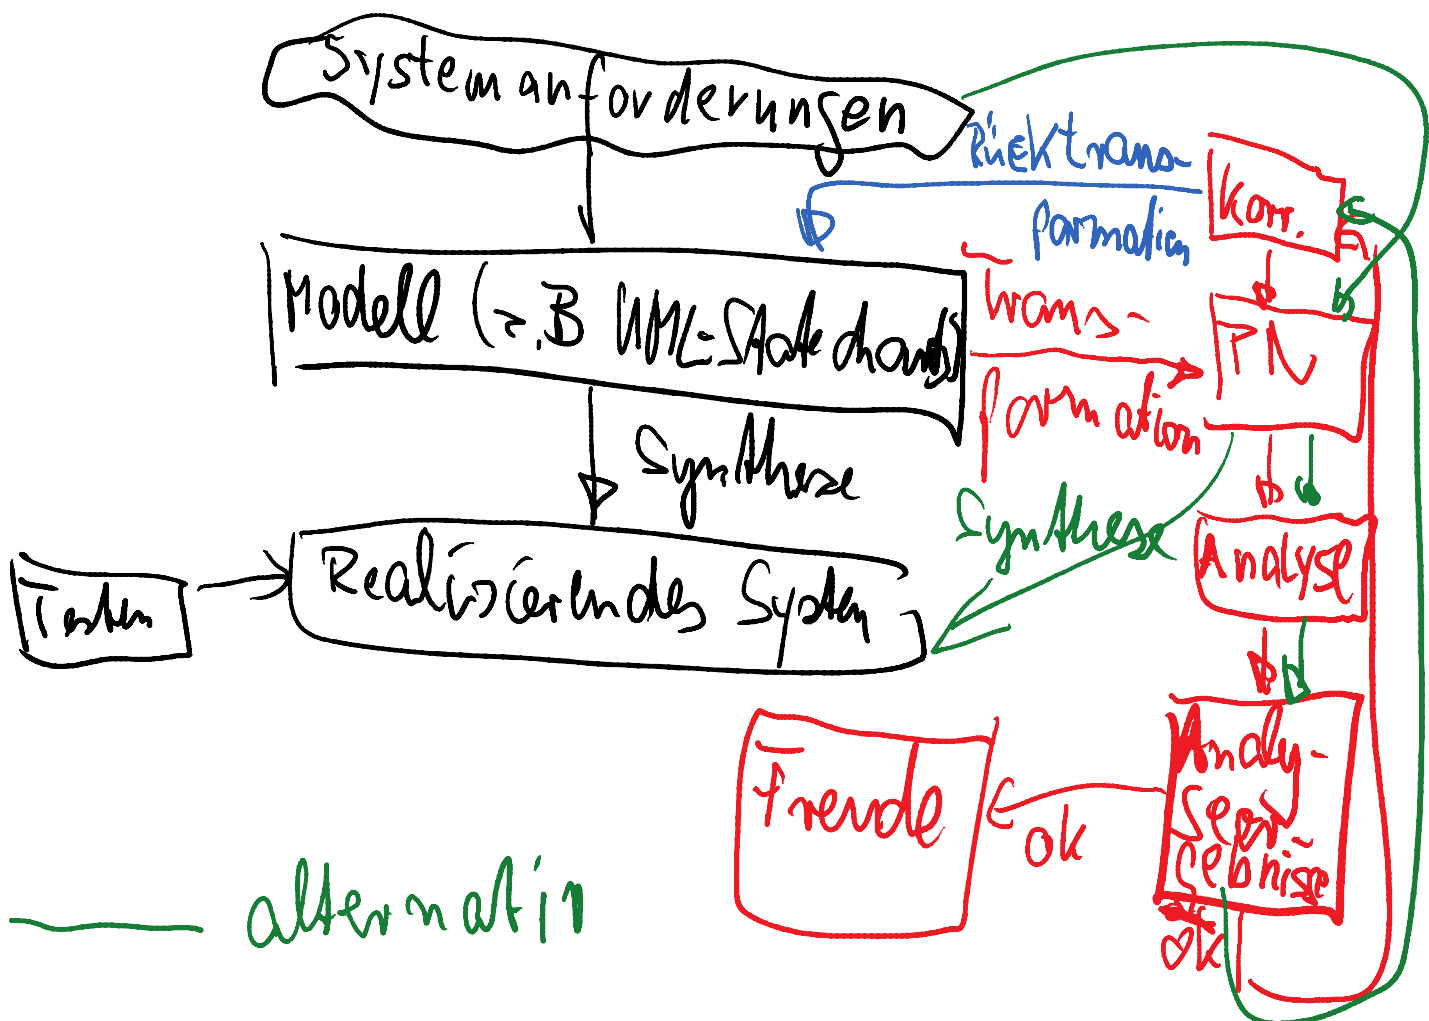 Systemanforderungen
Rücktrans-
formation
Korr.
Modell (z.B UML-Statecharts)
Trans-
formation
PN
Synthese
Synthese
Analyse
Testen
Realisierendes System
Freude
ok
Analy-
seer-
gebnisse
ok
alternativ